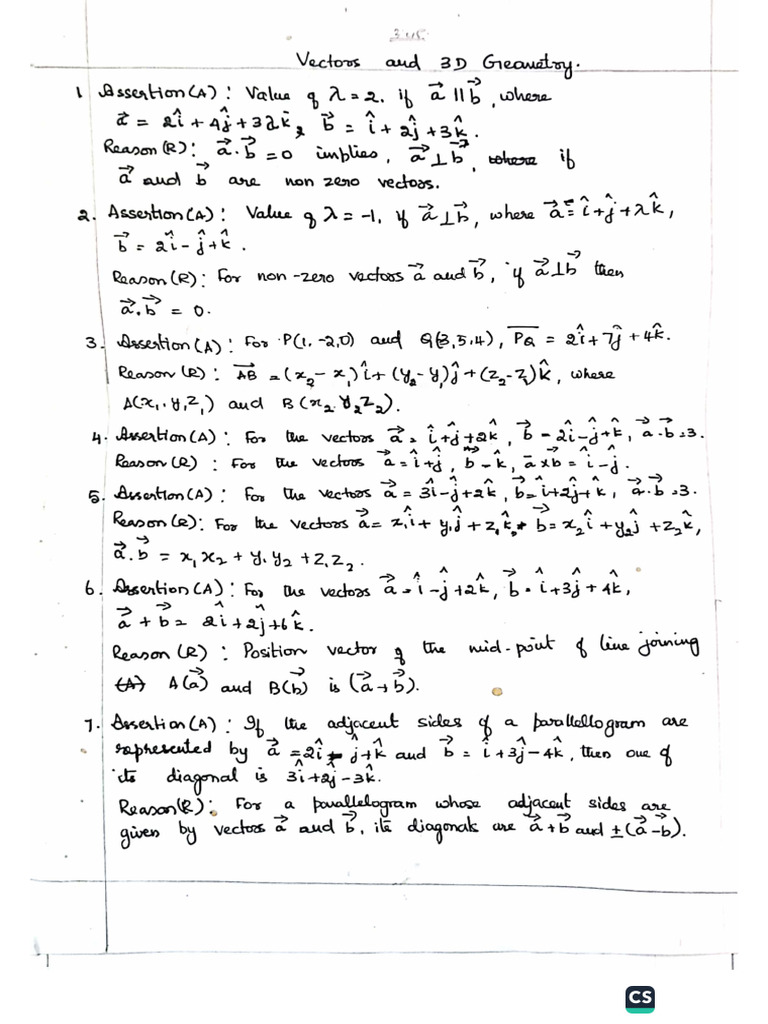 Vectors and 3D Geometry.
1 Assertion(A) : Value of λ=2, if a⃗ || b⃗, where
a⃗ = 2î + 4ĵ + 3λk̂, b⃗ = î + 2ĵ + 3k̂.
Reason(R) : a⃗.b⃗ = 0 implies, a⃗ ⊥ b⃗, where if
a⃗ and b⃗ are non zero vectors.
2. Assertion(A) : Value of λ = -1, if a⃗ ⊥ b⃗, where a⃗ = î + ĵ + λk̂,
b⃗ = 2î - ĵ + k̂.
Reason(R) : For non-zero vectors a⃗ and b⃗, if a⃗ ⊥ b⃗ then
a⃗.b⃗ = 0.
3. Assertion(A) : For P(1, -2,0) and Q(3,5,4), PQ = 2î + 7ĵ + 4k̂.
Reason(R) : AB⃗ = (x₂ - x₁)î + (y₂ - y₁)ĵ + (z₂ - z₁)k̂, where
A(x₁, y₁ z₁) and B(x₂ y₂ z₂).
4. Assertion(A) : For the vectors a⃗ = î + ĵ + 2k̂, b⃗ = 2î - ĵ + k̂, a⃗.b⃗ = 3.
Reason(R) : For the vectors a⃗ = î + ĵ, b⃗ = k̂, a⃗ x b = î - ĵ.
5. Assertion(A) : For the vectors a⃗ = 3î - ĵ + 2k̂, b⃗ = î + 2ĵ + k̂, a⃗.b⃗ = 3.
Reason(R) : For the vectors a⃗ = x₁î + y₁ĵ + z₁k̂, b⃗ = x₂î + y₂ĵ + z₂k̂,
a⃗.b⃗ = x₁x₂ + y₁y₂ + z₁z₂.
6. Assertion(A) : For the vectors a⃗ = î - ĵ + 2k̂, b⃗ = î + 3ĵ + 4k̂,
a⃗ + b⃗ = 2î + 2ĵ + 6k̂.
Reason (R) : Position vector of the mid-point of line joining
(A) A(a⃗) and B(b⃗) is (a⃗ + b⃗).
7. Assertion(A) : If the adjacent sides of a parallellogram are
represented by a⃗ = 2î - ĵ + k̂ and b⃗ = î + 3ĵ - 4k̂, then one of
its diagonal is 3î + 2ĵ - 3k̂.
Reason(R) : For a parallelogram whose adjacent sides are
given by vectors a⃗ and b⃗, its diagonals are a⃗ + b⃗ and ±(a⃗ - b⃗).
CS